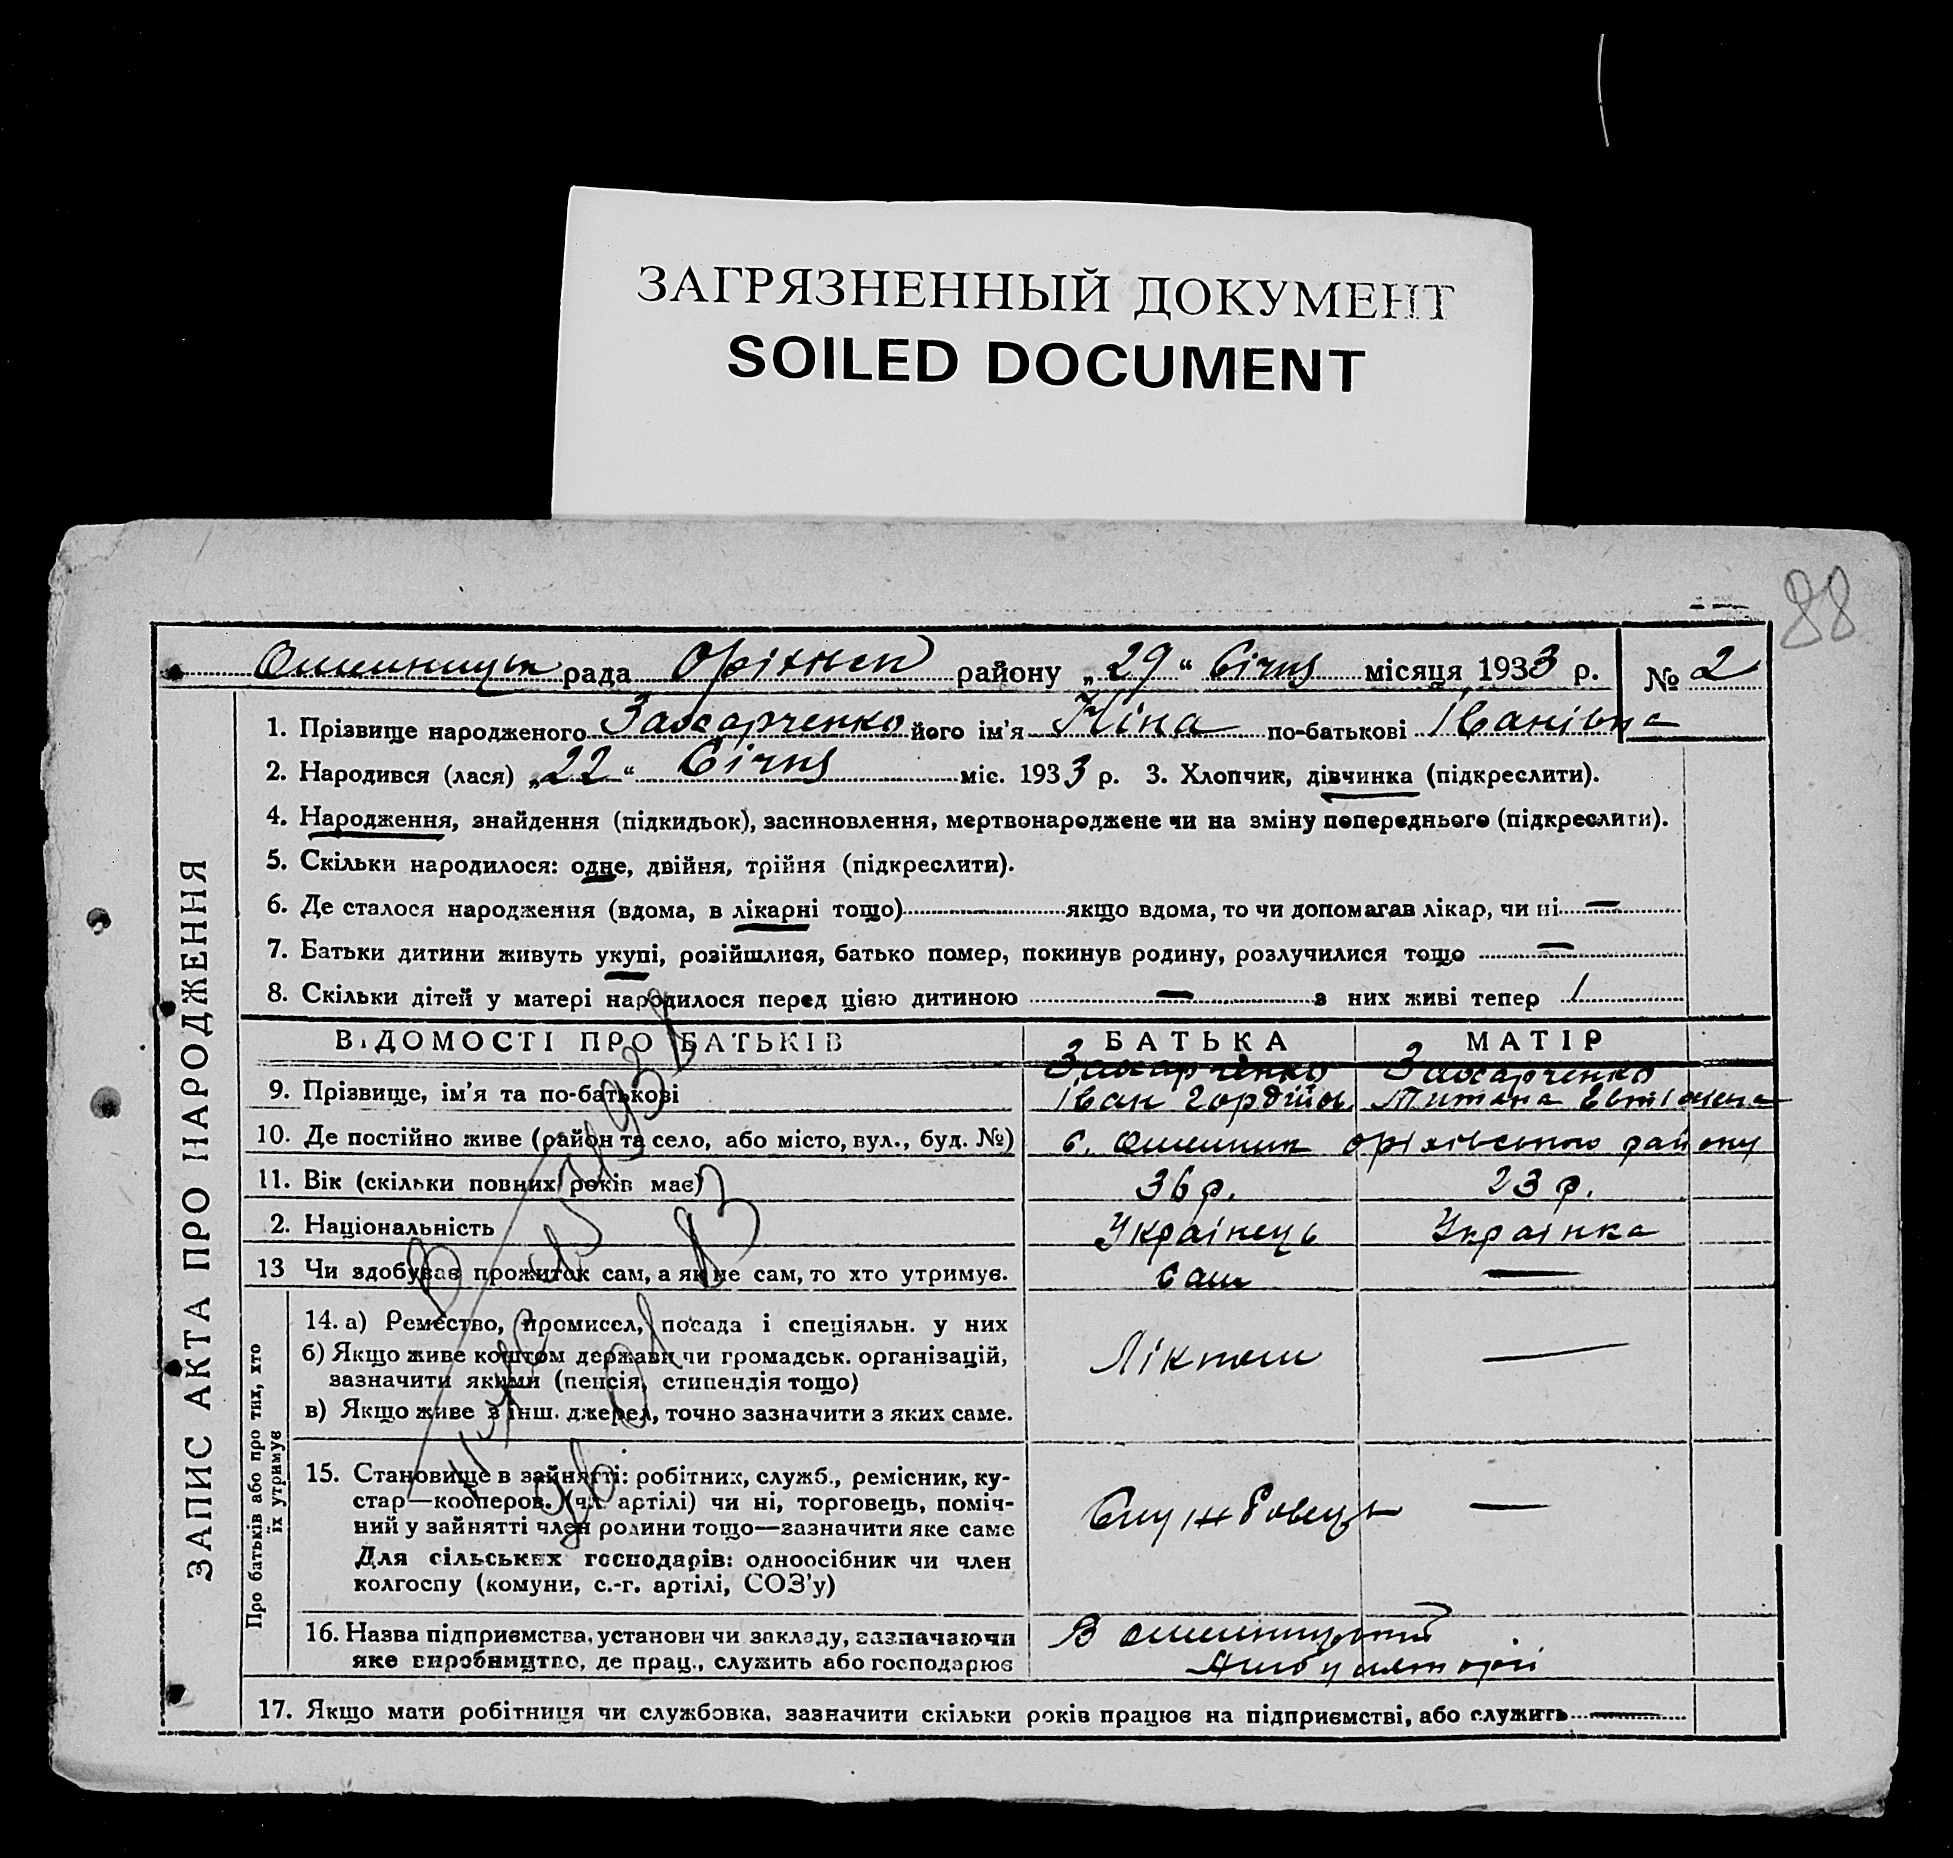 ЗАГРЯЗНЕННЫЙ ДОКУМЕНТ
SOILED DOCUMENT
88
рада районy „29“ Січня місяця 1933 р. № 2
1. Прізвище народженого Захарченко його ім'я Ніна по-батькові Іванівна
2. Народився (лася) „22“ Січня міс. 1933 р. 3. Хлопчик, дівчинка (підкреслити).
4. Народження, знайдення (підкидьок), засиновлення, мертвонароджене чи на зміну попереднього (підкреслити).
5. Скільки народилося: одне, двійня, трійня (підкреслити).
6. Де сталося народження (вдома, в лікарні тощо) якщо вдома, то чи допомагав лікар, чи ні —
7. Батьки дитини живуть укупі, розійшлися, батько помер, покинув родину, розлучилися тощо —
8. Скільки дітей у матері народилося перед цією дитиною — з них живі тепер 1
ВІДОМОСТІ ПРО БАТЬКІВ БАТЬКА МАТІР
Захарченко Захарченко
9. Прізвище, ім'я та по-батькові Іван Гордійов.
10. Де постійно живе (район та село, або місто, вул., буд. №) с. оріхівського району
11. Вік (скільки повних років має) 36 р. 23 р.
2. Національність Українець Українка
13 Чи здобував прожиток сам, а як не сам, то хто утримує. сам —
14. а) Ремество, промисел, посада і спеціяльн. у них
б) Якщо живе коштом держави чи громадськ. організацій, Лікпом —
зазначити якими (пенсія, стипендія тощо)
в) Якщо живе з інш. джерел, точно зазначити з яких саме.
15. Становище в зайнятті: робітник, служб., ремісник, ку-
стар—кооперов. (чл. артілі) чи ні, торговець, поміч- Службовець —
ний у зайнятті член родини тощо—зазначити яке саме
Для сільських господарів: одноосібник чи член
колгоспу (комуни, с.-г. артілі, СОЗ'у)
16. Назва підприємства, установи чи закладу, зазначаючи В
яке виробництво, де прац., служить або господарює Амбулаторії
17. Якщо мати робітниця чи службовка, зазначити скільки років працює на підприємстві, або служить —
ЗАПИС АКТА ПРО НАРОДЖЕННЯ
Про батьків або про тих, хто
їх утримує